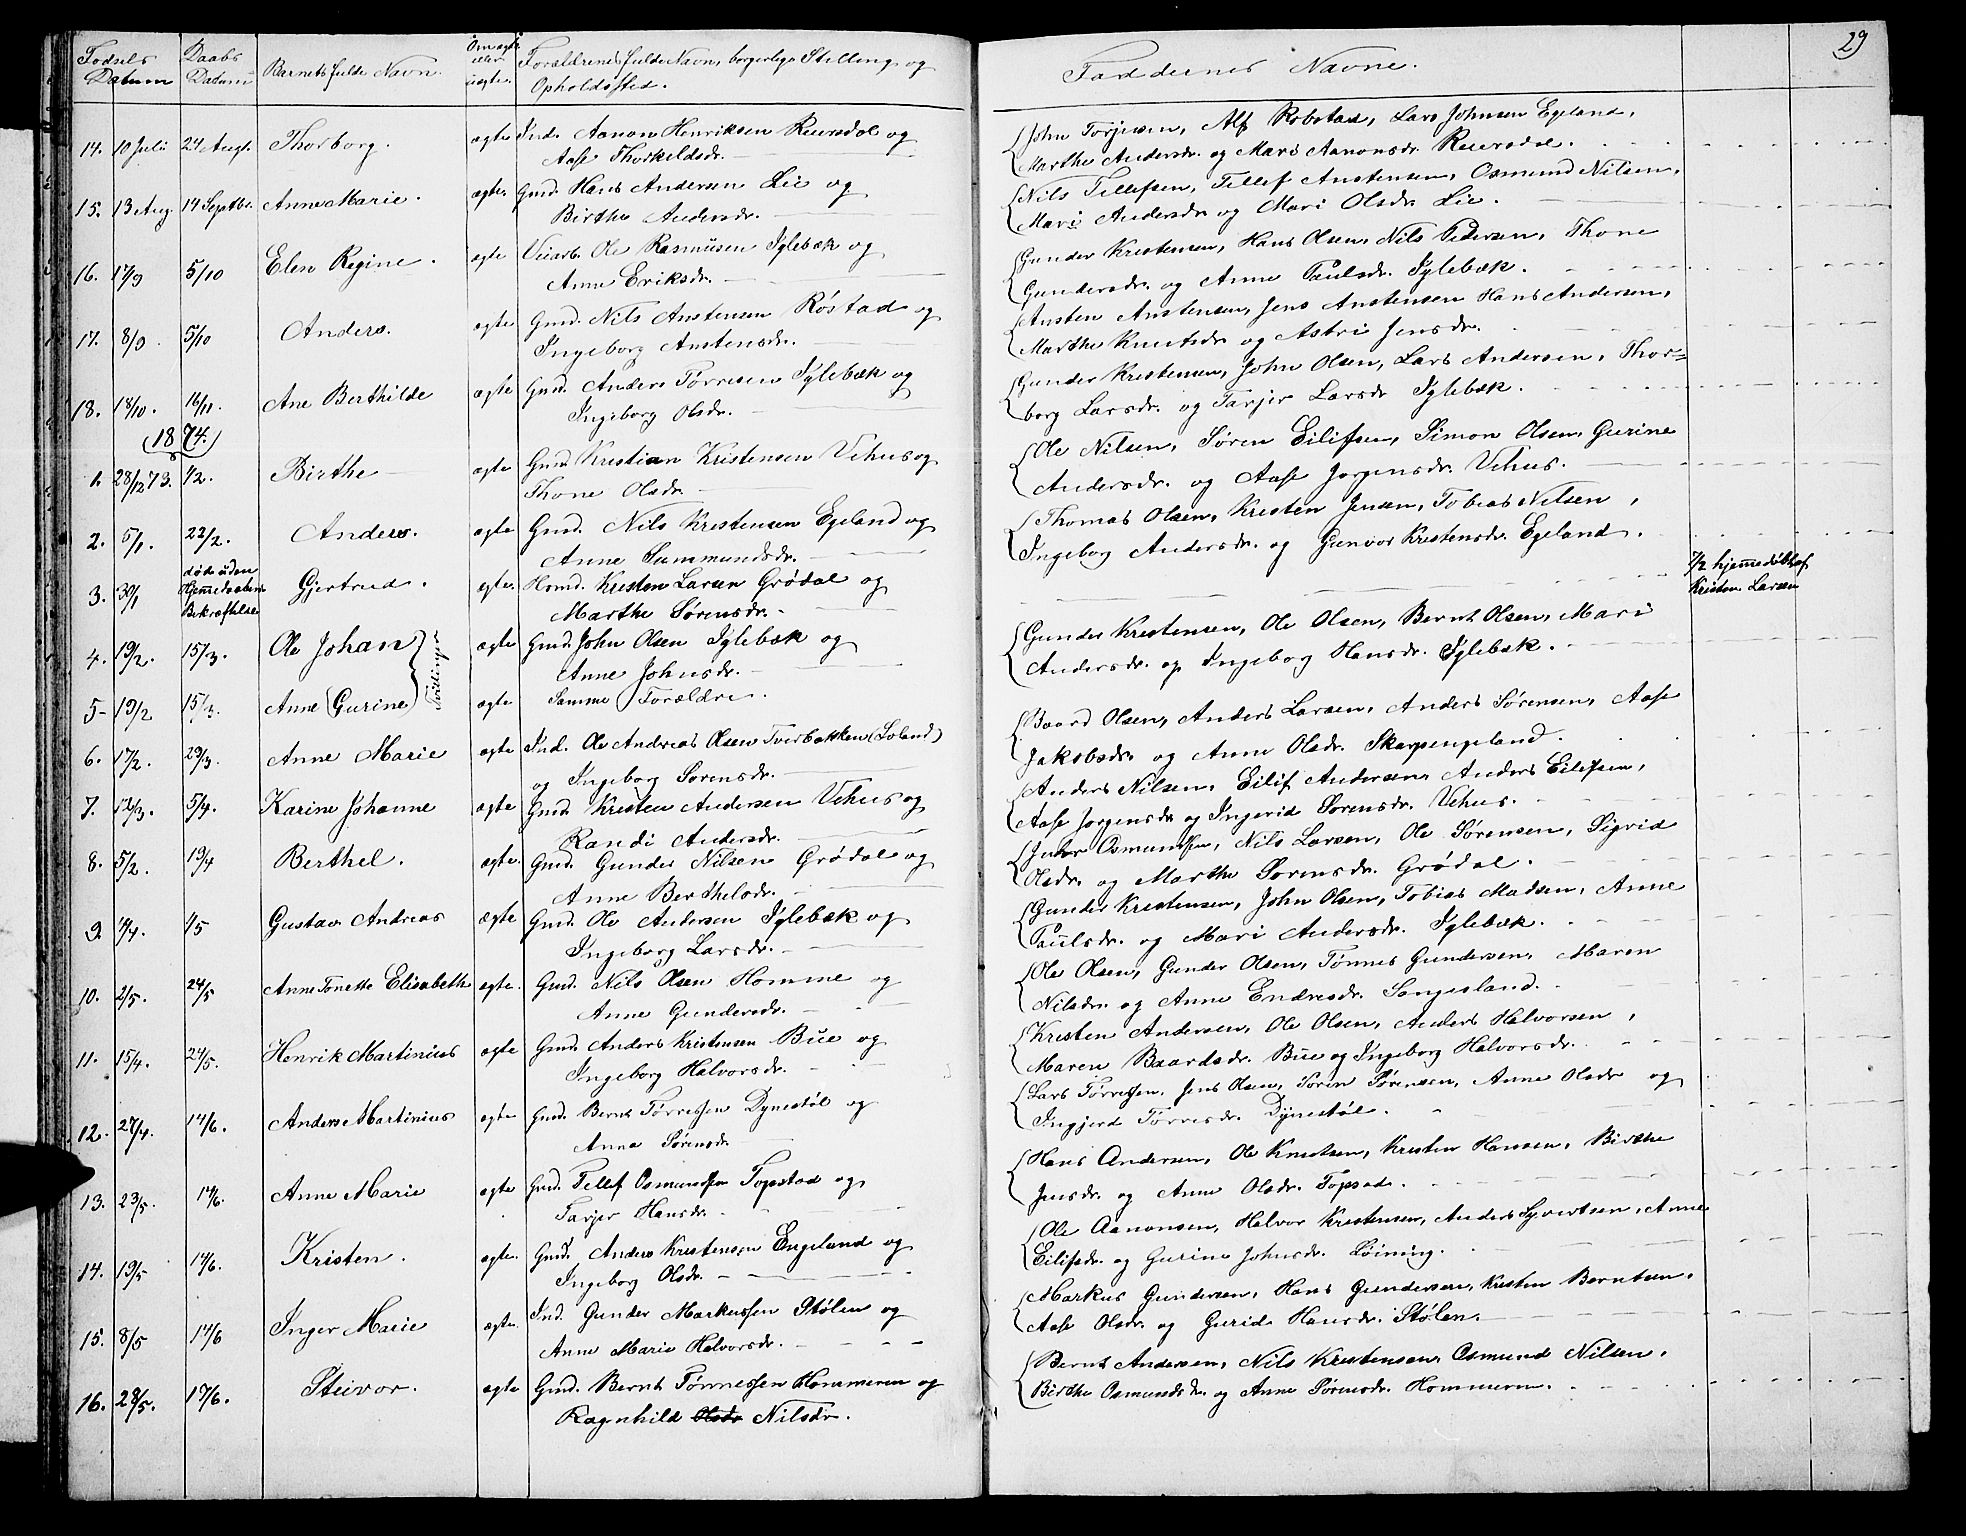 29
Fødsels Datum
Daabs Datum
Barnets fulde Navn.
Om ægte eller uægte.
Forældrenes fulde Navn, borgerlige Stilling og
Opholdssted.
Faddernes Navne.
14. 10 Juli 24 Augt. Thorborg. ægte Ind. Aanon Henriksen Reiersdal og
Aase Thorkildsdr.
John Torjesen, Alf Robstad, Lars Johnsen Egeland,
Marthe Andersdr. og Mari Aanonsdr. Reiersdal.
15. 13 Aug. 14 Septbr. Anne Marie. ægte. Gmd. Hans Andersen Lie og
Birthe Andersdr.
Nils Tellefsen, Tellef Anstensen, Osmund Nilsen,
Mari Andersdr og Mari Olsdr. Lie.
16. 17/9 5/10 Elen Regine. ægte Veiarb. Ole Rasmusen Iglebæk og
Anne Eriksdr.
Gunder Kristensen, Hans Olsen, Nils Pedersen, Thone
Gundersdr. og Anne Paulsdr. Iglebæk.
17. 8/9. 5/10 Anders. ægte Gmd. Nils Anstensen Róstad og
Ingeborg Anstensdr.
Ansten Anstensen, Jens Anstensen Hans Andersen,
Marthe Knutsdr og Astri Jensdr.
18. 18/10. 16/11. Ane Berthilde ægte Gmd. Anders Tørresen Iglebæk og
Ingeborg Olsdr.
Gunder Kristensen, John Olsen, Lars Andersen, Thor=
borg Larsdr. og Tarjer Larsdr Iglebæk.
(1874.)
1. 28/12 73. 1/2. Birthe ægte Gmd. Kristian Kristensen Vehus og
Thone Olsdr.
Ole Nilsen, Søren Eilifsen, Simon Olsen, Gurine
Andersdr. og Aase Jørgensdr. Vehus.
2. 5/1. 22/2. Anders. ægte Gmd. Nils Kristensen Egeland og
Anne Summundsdr.
Thomas Olsen, Kristen Jensen, Tobias Nilsen,
Ingeborg Andersdr. og Gunvor Kristensdr. Egeland.
3. 30/1 døde uden
Hjemedaabens
Bekræftelse Gjertrud. ægte. Hmd. Kristen Larsen Grødal og
Marthe Sørensdr.
7/2 hjemmedøbt af
Kristen Larsen
4. 19/2. 15/3. Ole Johan ægte Gmd. John Olsen Iglebæk og
Anne Johnsdr.
Tvillinger
Gunder Kristensen, Ole Olsen, Bernt Olsen, Mari
Andersdr. og Ingeborg Hansdr. Iglebæk.
5 19/2 15/3. Anne (Gurine) ægte Samme Forældre.
Baard Olsen, Anders Larsen, Anders Sørensen, Aase
Jakobsdr. og Anne Olsdr. Skarpengeland.
6. 17/2. 29/3. Anne Marie ægte Ind. Ole Andreas Olsen Tverbakken (Loland)
og Ingeborg Sørensdr.
7. 12/3. 5/4. Karine Johanne ægte Gmd. Kristen Andersen Vehus og
Randi Andersdr.
Anders Nilsen, Eilif Andersen, Anders Eilifsen,
Aase Jørgensdr og Ingerid Sørensdr. Vehus.
8. 5/2. 19/4 Berthel. ægte. Gmd. Gunder Nilsen Grødal og
Anne Berthelsdr.
Osmundsen, Nils Larsen, Ole Sørensen, Sigrid
Olsdr. og Marthe Sørensdr. Grødal.
9 4/4. 1/5 Gustav Andreas ægte Gmd. Ole Andersen Iglebæk og
Ingeborg Larsdr.
Gunder Kristensen, John Olsen, Tobias Madsen, Anne
Paulsdr. og Mari Andersdr. Iglebæk.
10. 2/5. 24/5 Anne Tonette Elisabeth ægte. Gmd. Nils Olsen Homme og
Anne Gundersdr.
Ole Olsen, Gunder Olsen, Tønnes Gundersen, Maren
Nilsdr. og Anne Endresdr. Sangesland.
11. 15/4. 24/5. Henrik Martinius ægte Gmd. Anders Kristensen Bue og
Ingeborg Halvorsdr.
Kristen Andersen, Ole Olsen, Anders Halvorsen,
Maren Baardsdr. Bue og Ingeborg Halvorsdr.
12. 27/4. 14/6. Anders Martinius ægte Gmd. Bernt Tørressen Dynestøl og
Anna Sørensdr.
Lars Tørressen, Jens Olsen, Søren Sørensen, Anne Olsdr og
Ingjerd Tørresdr. Dynestøl.
13. 23/5. 14/6. Anne Marie ægte Gmd. Tellef Osmundsen Topstad og
Tarjer Hansdr.
Hans Andersen, Ole Knutsen, Kristen Hansen, Birthe
Jensdr. og Anne Olsdr. Topsad.
14. 19/5 14/6. Kristen. ægte. Gmd. Anders Kristensen Engeland og
Ingeborg Olsdr.
Ole Aanonsen, Halvor Kristensen, Anders Syvertsen, Anne
Eilifsdr. og Gurine Johnsdr. Løining.
15. 8/5 14/6 Inger Marie ægte. Ind. Gunder Markussen Stølen og
Anne Marie Halvorsdr.
Markus Gundersen, Hans Gundersen, Kristen Berntsen,
Aase Olsdr. og Gurid Hansdr. Stølen.
16. 28/5. 17/6. Steivor. ægte Gmd. Bernt Tønnessen Hommeren og
Ragnhild Olsdr Nilsdr.
Bernt Andersen, Nils Kristensen, Osmund Nilsen,
Birthe Osmundsdr. og Anne Sørensdr. Hommeren.